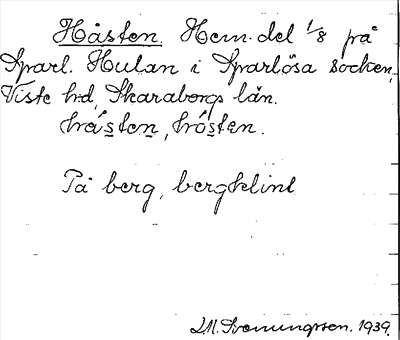 Håsten. Hem.del 1/8 på
Sparl. Hulan i Sparlösa socken,
Viste hrd, Skaraborgs län.
håsten, hòsten.
På berg, bergklint
L.M. Svenungsson. 1939.